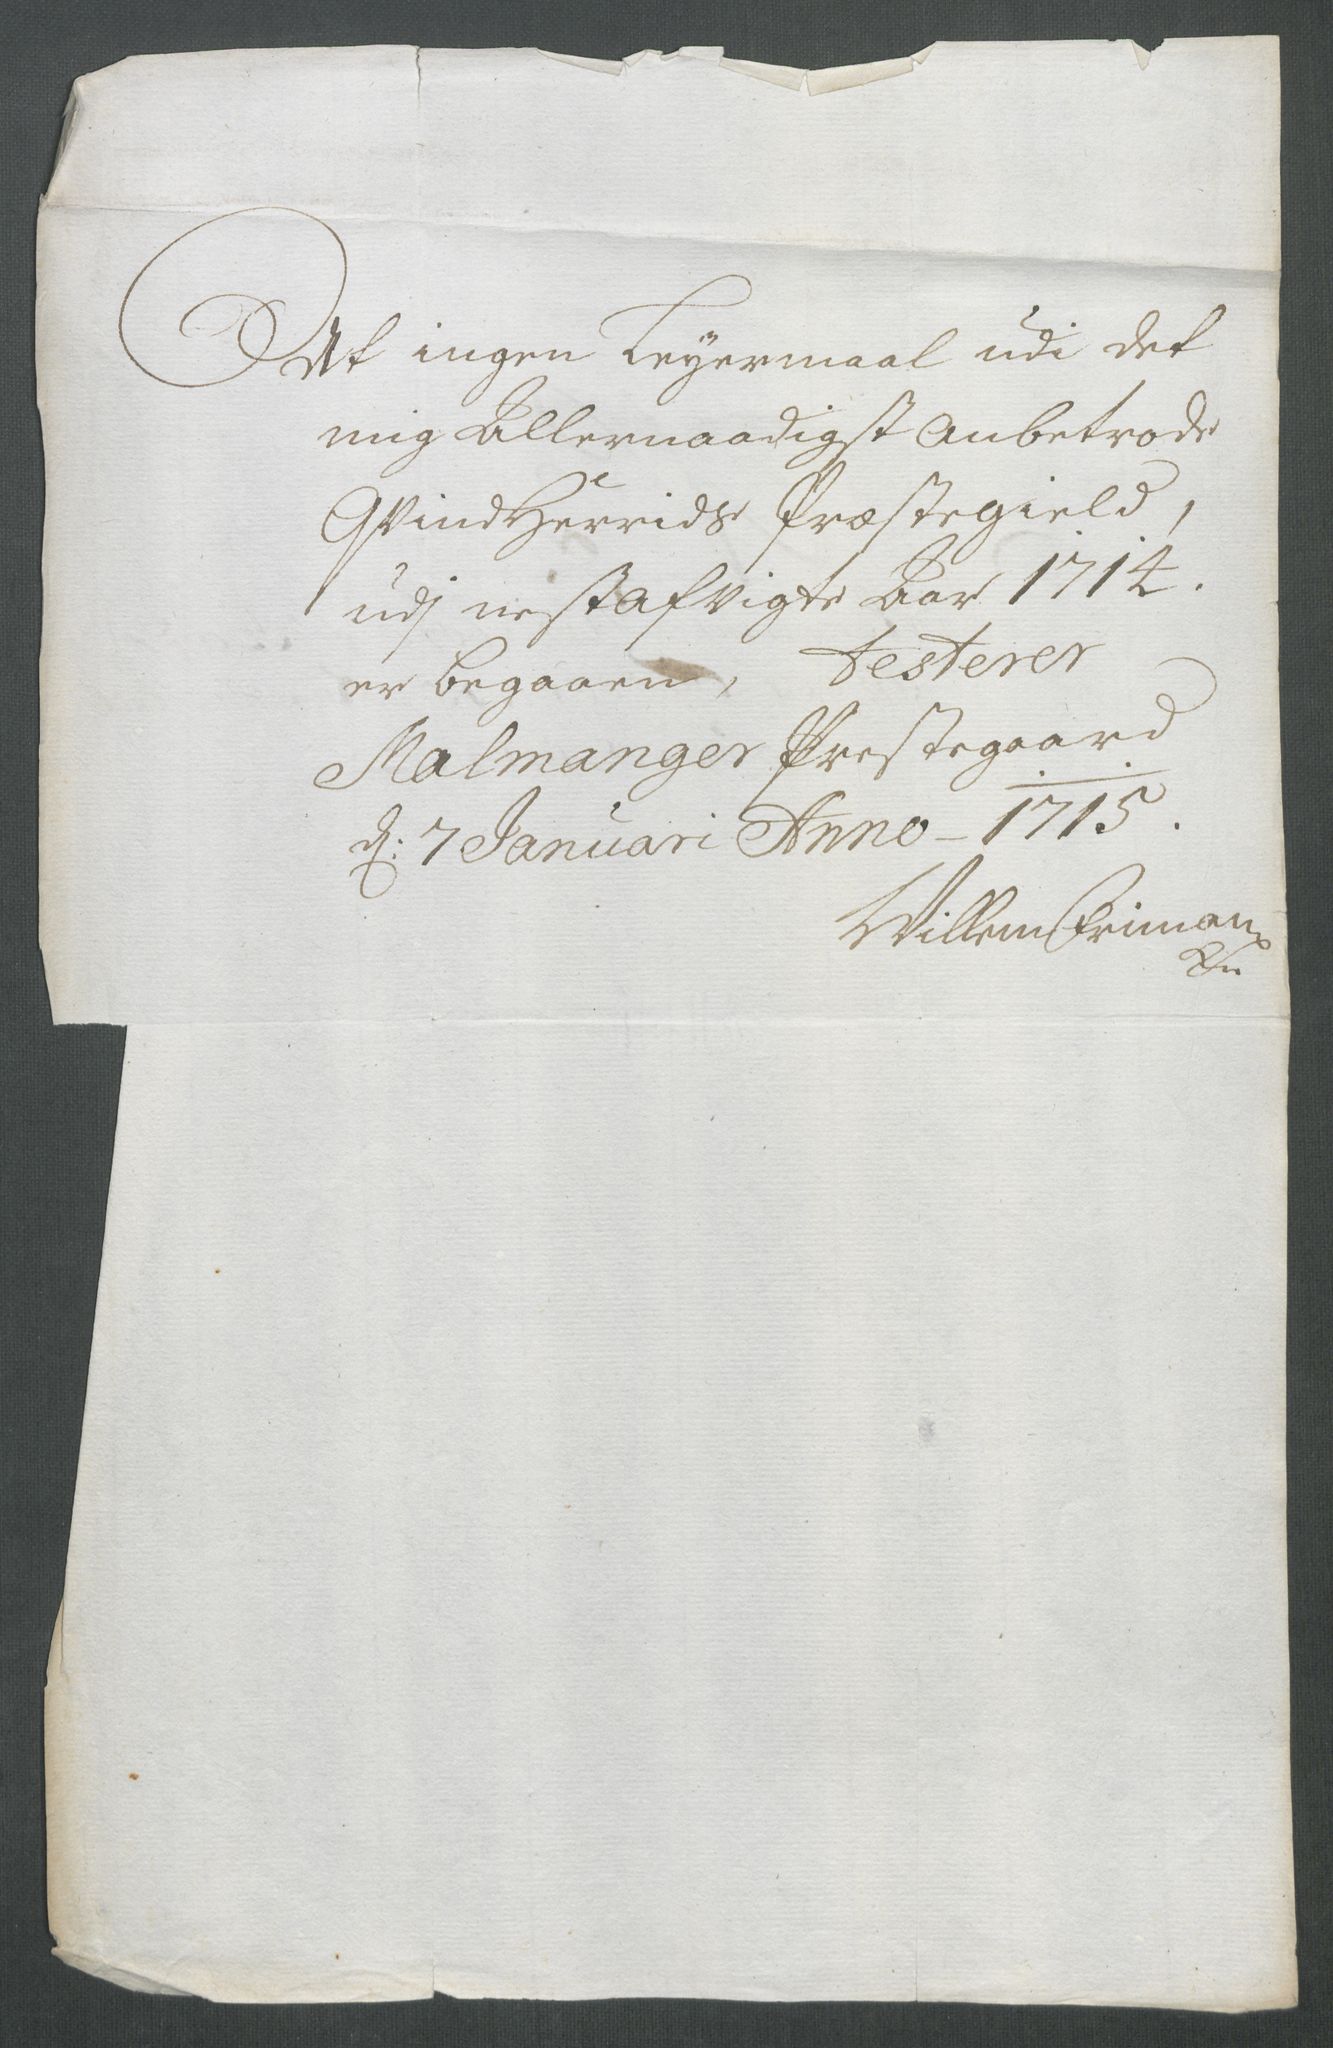 At ingen Leyermaal udi det
mig Allernaadigst Anbetrode
QvindHerrids Præstegield,
udj nestAfvigte Aar 1714.
er begaaen, testerer
Malmanger Præstegaard
d: 7 Januari Anno - 1715.
Willem Friman